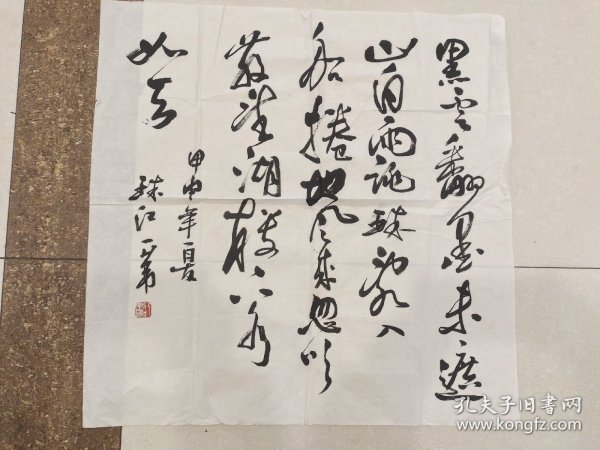 黑云翻墨未遮
山白雨跳珠乱入
船捲地风来忽吹
散望湖楼下水
如天
甲申年夏
珠江
孔夫子旧书网
www.kongfz.com